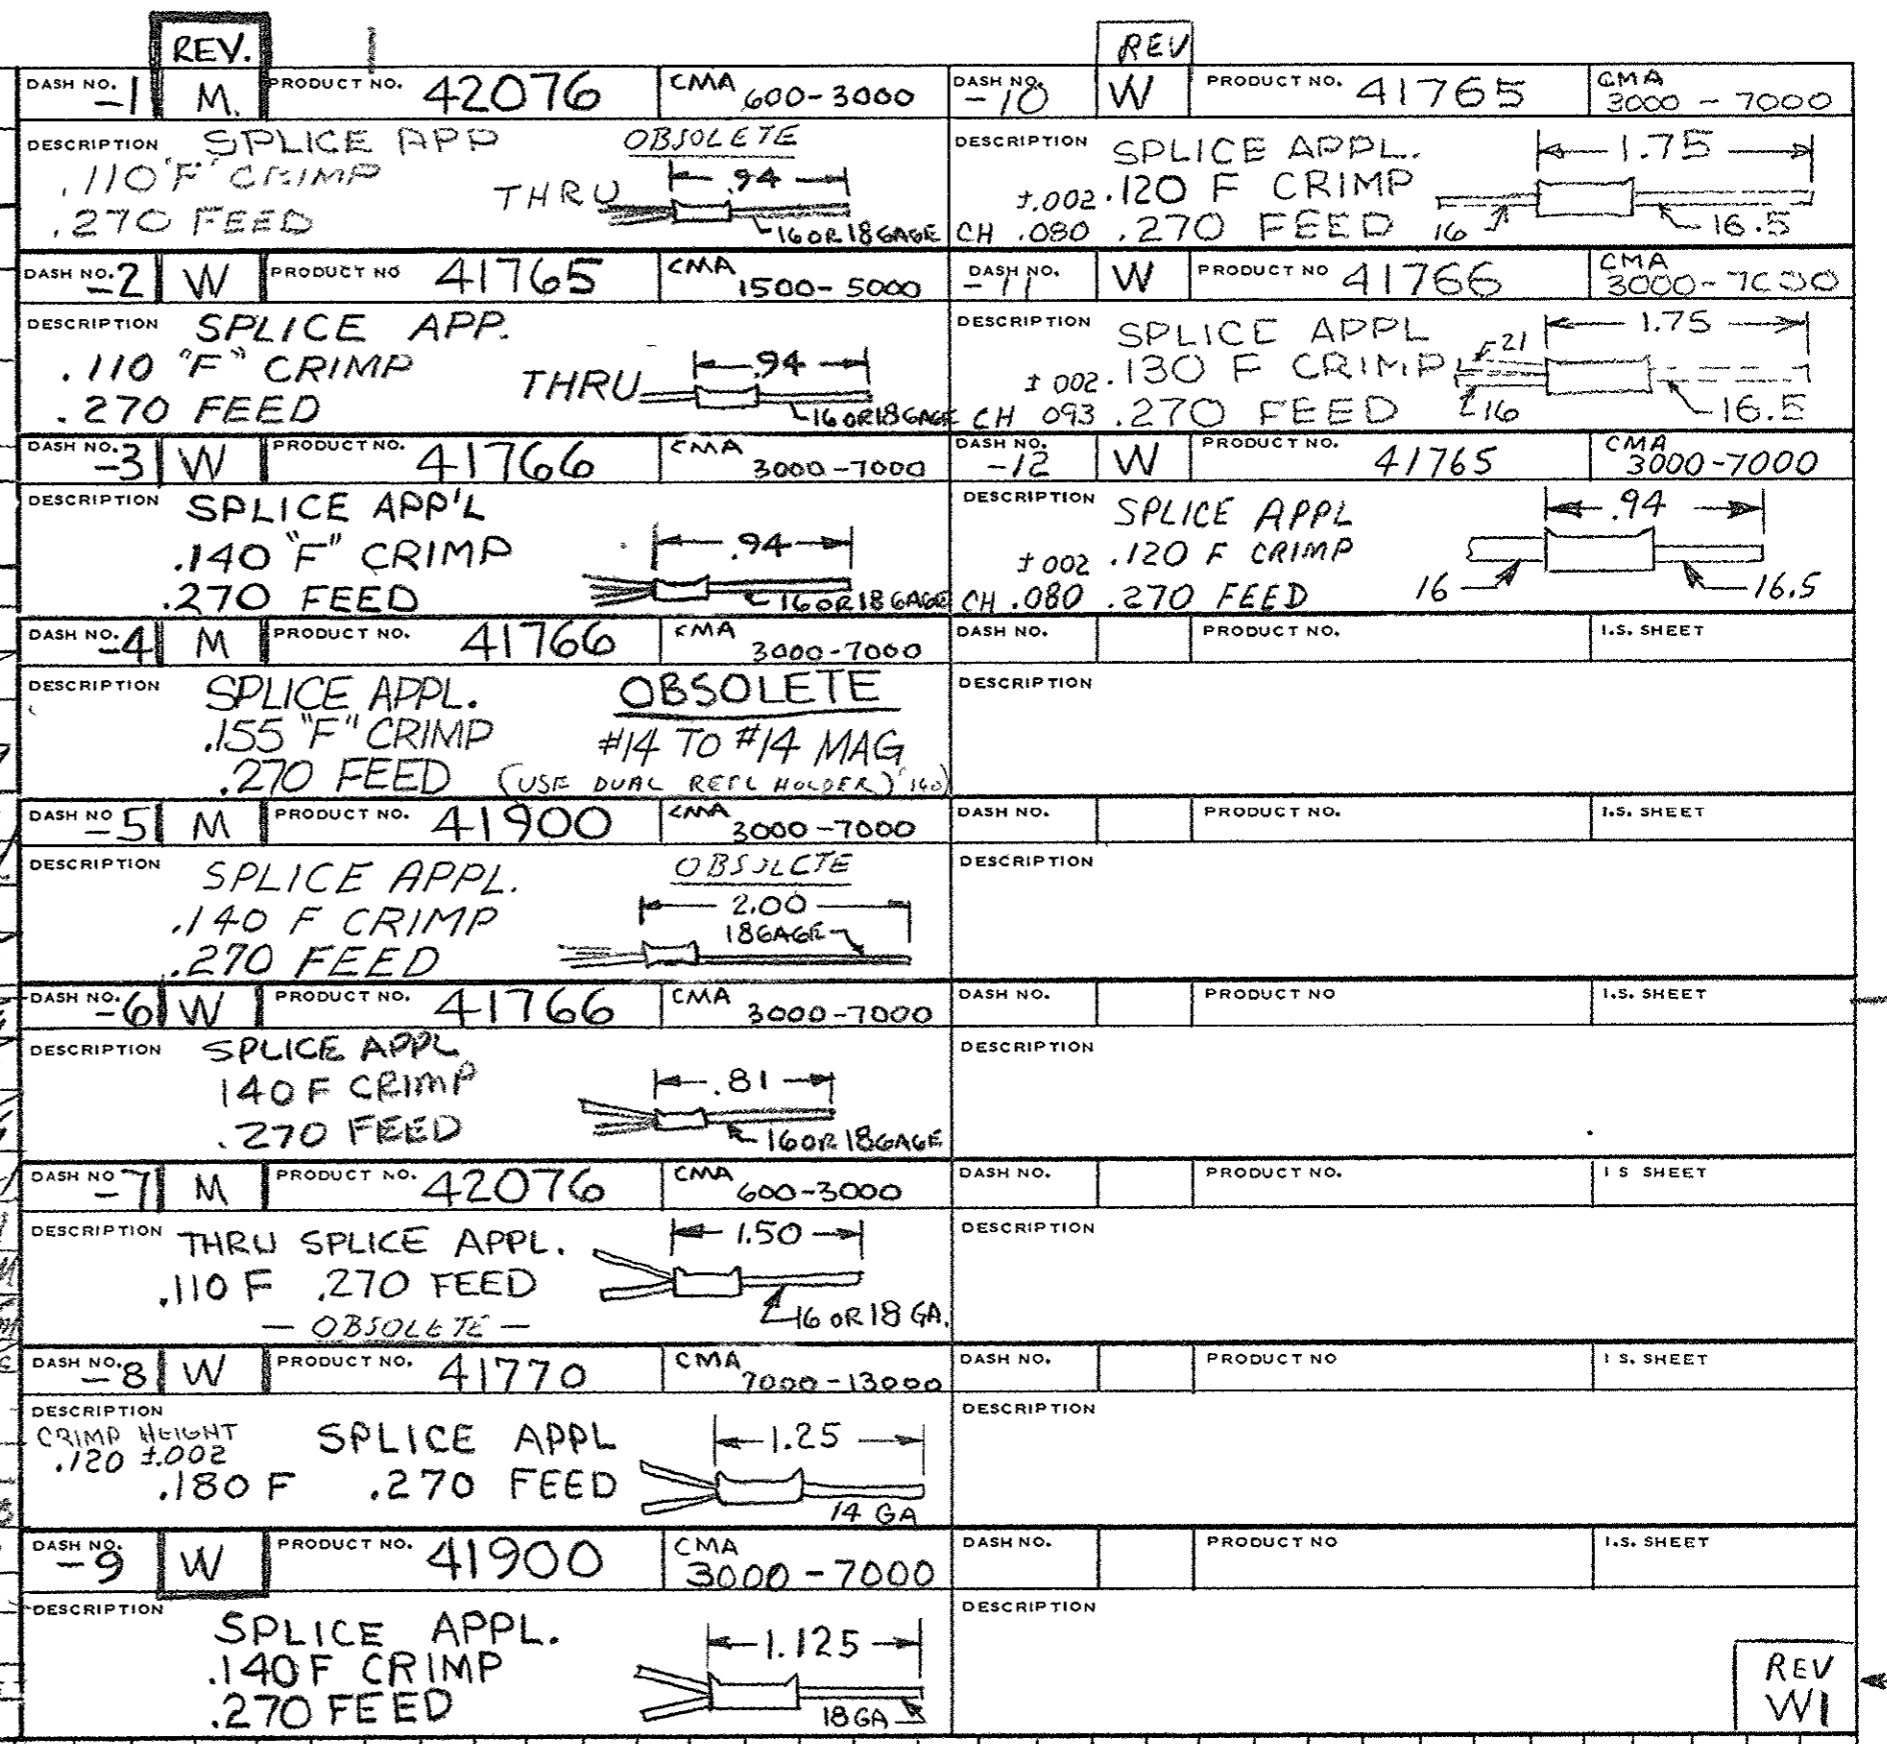 REV.
DASH NO. -1 M. PRODUCT NO. 42076 CMA 600-3000
DESCRIPTION SPLICE APP OBSOLETE
.110 "F" CRIMP THRU .94
.270 FEED 16 OR 18 GAGE
DASH NO. -2 W PRODUCT NO 41765 CMA 1500-5000
DESCRIPTION SPLICE APP.
.110 "F" CRIMP THRU .94
.270 FEED 16 OR 18 GAGE
DASH NO. -3 W PRODUCT NO. 41766 CMA 3000-7000
DESCRIPTION SPLICE APP'L
.140 "F" CRIMP .94
.270 FEED 16 OR 18 GAGE
DASH NO. -4 M PRODUCT NO. 41766 CMA 3000-7000
DESCRIPTION SPLICE APPL. OBSOLETE
.155 "F" CRIMP #14 TO #14 MAG
.270 FEED (USE DUAL REEL HOLDER)
DASH NO -5 M PRODUCT NO. 41900 CMA 3000-7000
DESCRIPTION SPLICE APPL. OBSOLETE
.140 F CRIMP 2.00
.270 FEED 18 GAGE
DASH NO. -6 W PRODUCT NO. 41766 CMA 3000-7000
DESCRIPTION SPLICE APPL
140 F CRIMP .81
.270 FEED 16 OR 18 GAGE
DASH NO -7 M PRODUCT NO. 42076 CMA 600-3000
DESCRIPTION THRU SPLICE APPL. 1.50
.110 F .270 FEED
16 OR 18 GA.
- OBSOLETE -
DASH NO. -8 W PRODUCT NO. 41770 CMA 7000-13000
DESCRIPTION
CRIMP HEIGHT SPLICE APPL 1.25
.120 ±.002
.180 F .270 FEED
14 GA
DASH NO. -9 W PRODUCT NO. 41900 CMA 3000-7000
DESCRIPTION
SPLICE APPL. 1.125
.140 F CRIMP
.270 FEED 18 GA
REV
DASH NO. -10 W PRODUCT NO. 41765 CMA 3000-7000
DESCRIPTION SPLICE APPL. 1.75
±.002 .120 F CRIMP
CH .080 .270 FEED 16 16.5
DASH NO. -11 W PRODUCT NO 41766 CMA 3000-7000
DESCRIPTION SPLICE APPL 1.75
± 002 .130 F CRIMP 21
CH 093 .270 FEED 16 16.5
DASH NO. -12 W PRODUCT NO. 41765 CMA 3000-7000
DESCRIPTION SPLICE APPL .94
± 002 .120 F CRIMP
CH .080 .270 FEED 16 16.5
DASH NO. PRODUCT NO. I.S. SHEET
DESCRIPTION
DASH NO. PRODUCT NO. I.S. SHEET
DESCRIPTION
DASH NO. PRODUCT NO I.S. SHEET
DESCRIPTION
DASH NO. PRODUCT NO. I S SHEET
DESCRIPTION
DASH NO. PRODUCT NO I S. SHEET
DESCRIPTION
DASH NO. PRODUCT NO I.S. SHEET
DESCRIPTION
REV
W1